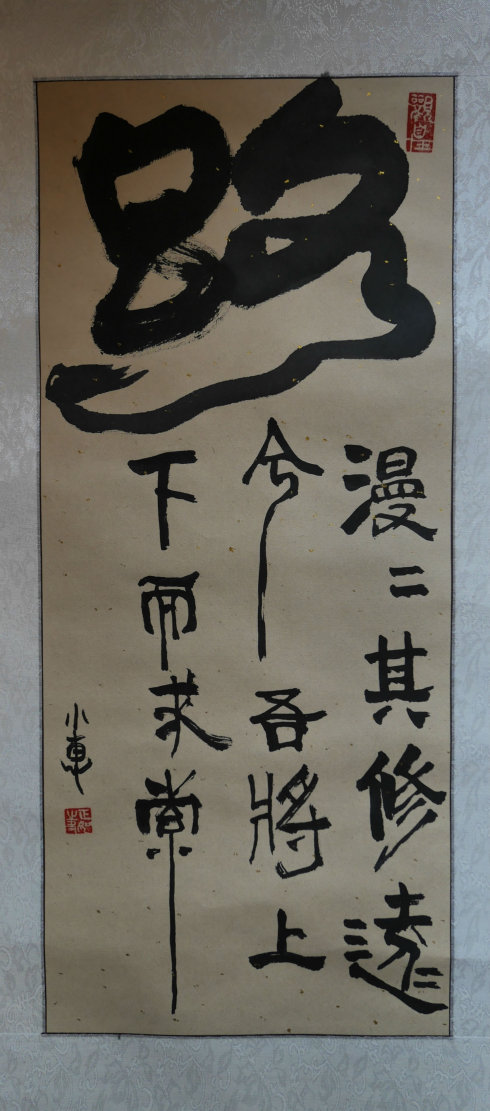 路
漫〻其修遠
兮吾將上
下而求索
小車